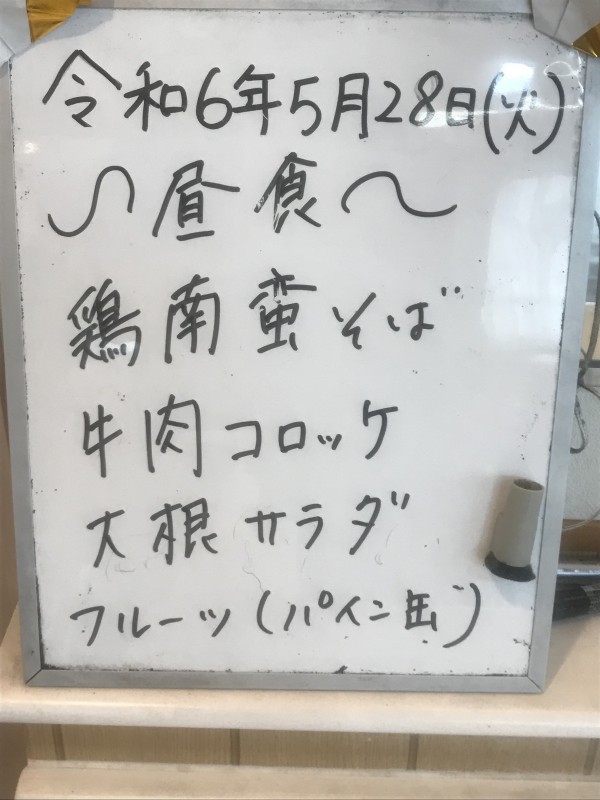 令和6年5月28日(火)
〜昼食〜
鶏南蛮そば
牛肉コロッケ
大根サラダ
フルーツ(パイン缶)